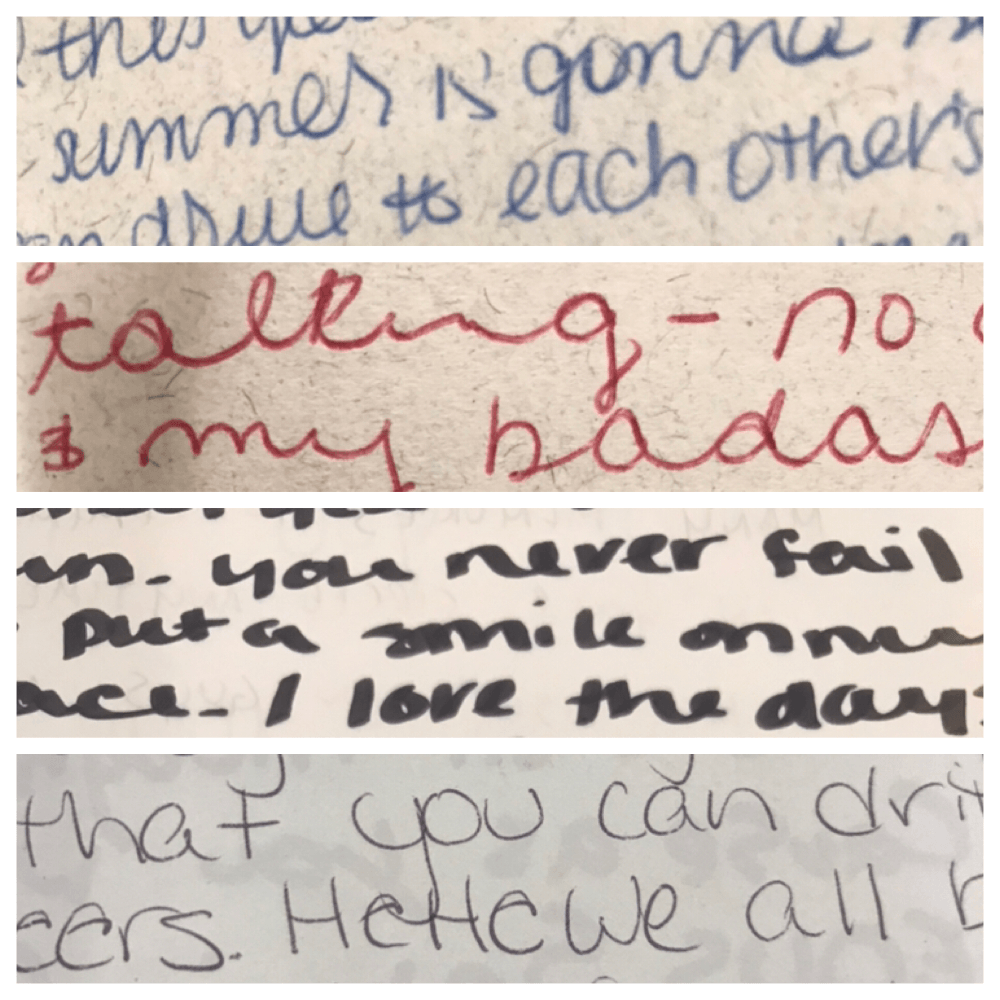 this
summer is gonna
to each other's
talking - no
my badas
un. you never fail
put a smile on
ace. I love the day
that you can dri
eers. HeHe we all b